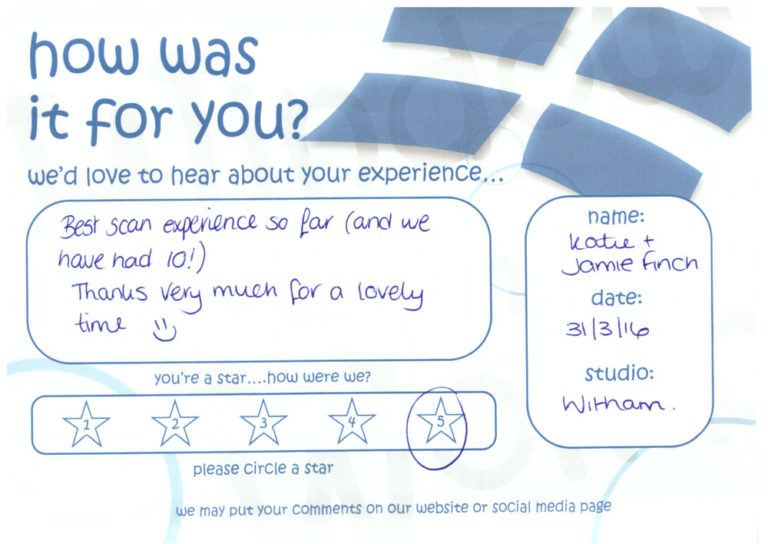 how was
it for you?
we'd love to hear about your experience...
Best scan experience so far (and we
have had 10!)
Thanks very much for a lovely
time
name:
Katie +
Jamie Finch
date:
31/3/16
studio:
Witham.
you're a star....how were we?
1 2 3 4 5
please circle a star
we may put your comments on our website or social media page